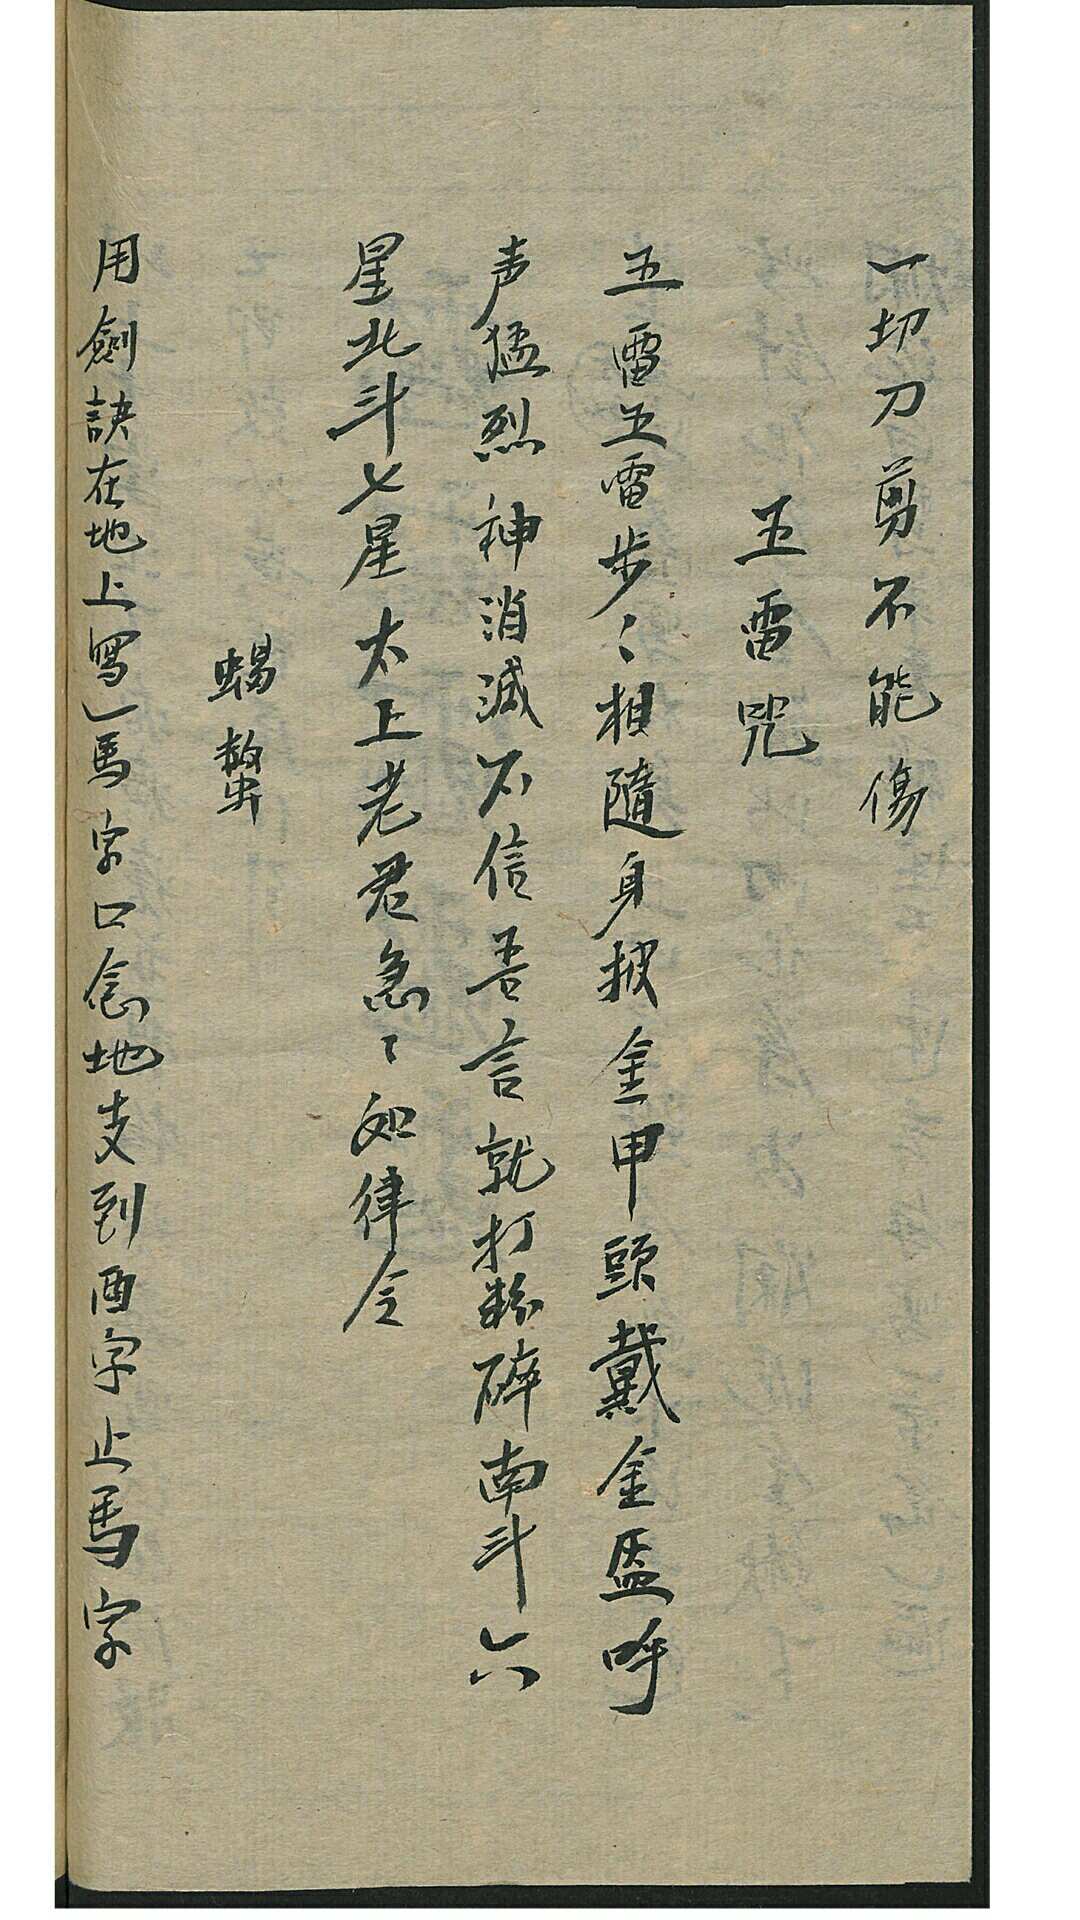 一切刀剪不能傷
五雷咒
五雷五雷步〻相隨身披金甲頭戴金盔呼
声猛烈神消滅不信吾言就打粉碎南斗六
星北斗七星太上老君急〻如律令
蝎螫
用劍訣在地上寫一馬字口念地支到酉字止馬字